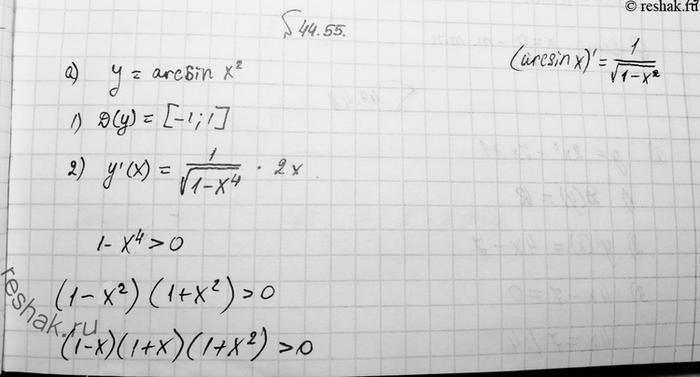 © reshak.ru
§44.55.
(arcsin x)' = 1/√(1-x²)
а) y = arcsin x²
1) D(y) = [-1; 1]
2) y'(x) = 1/√(1-x⁴) · 2x
1-x⁴>0
(1-x²)(1+x²)>0
(1-x)(1+x)(1+x²)>0
reshak.ru